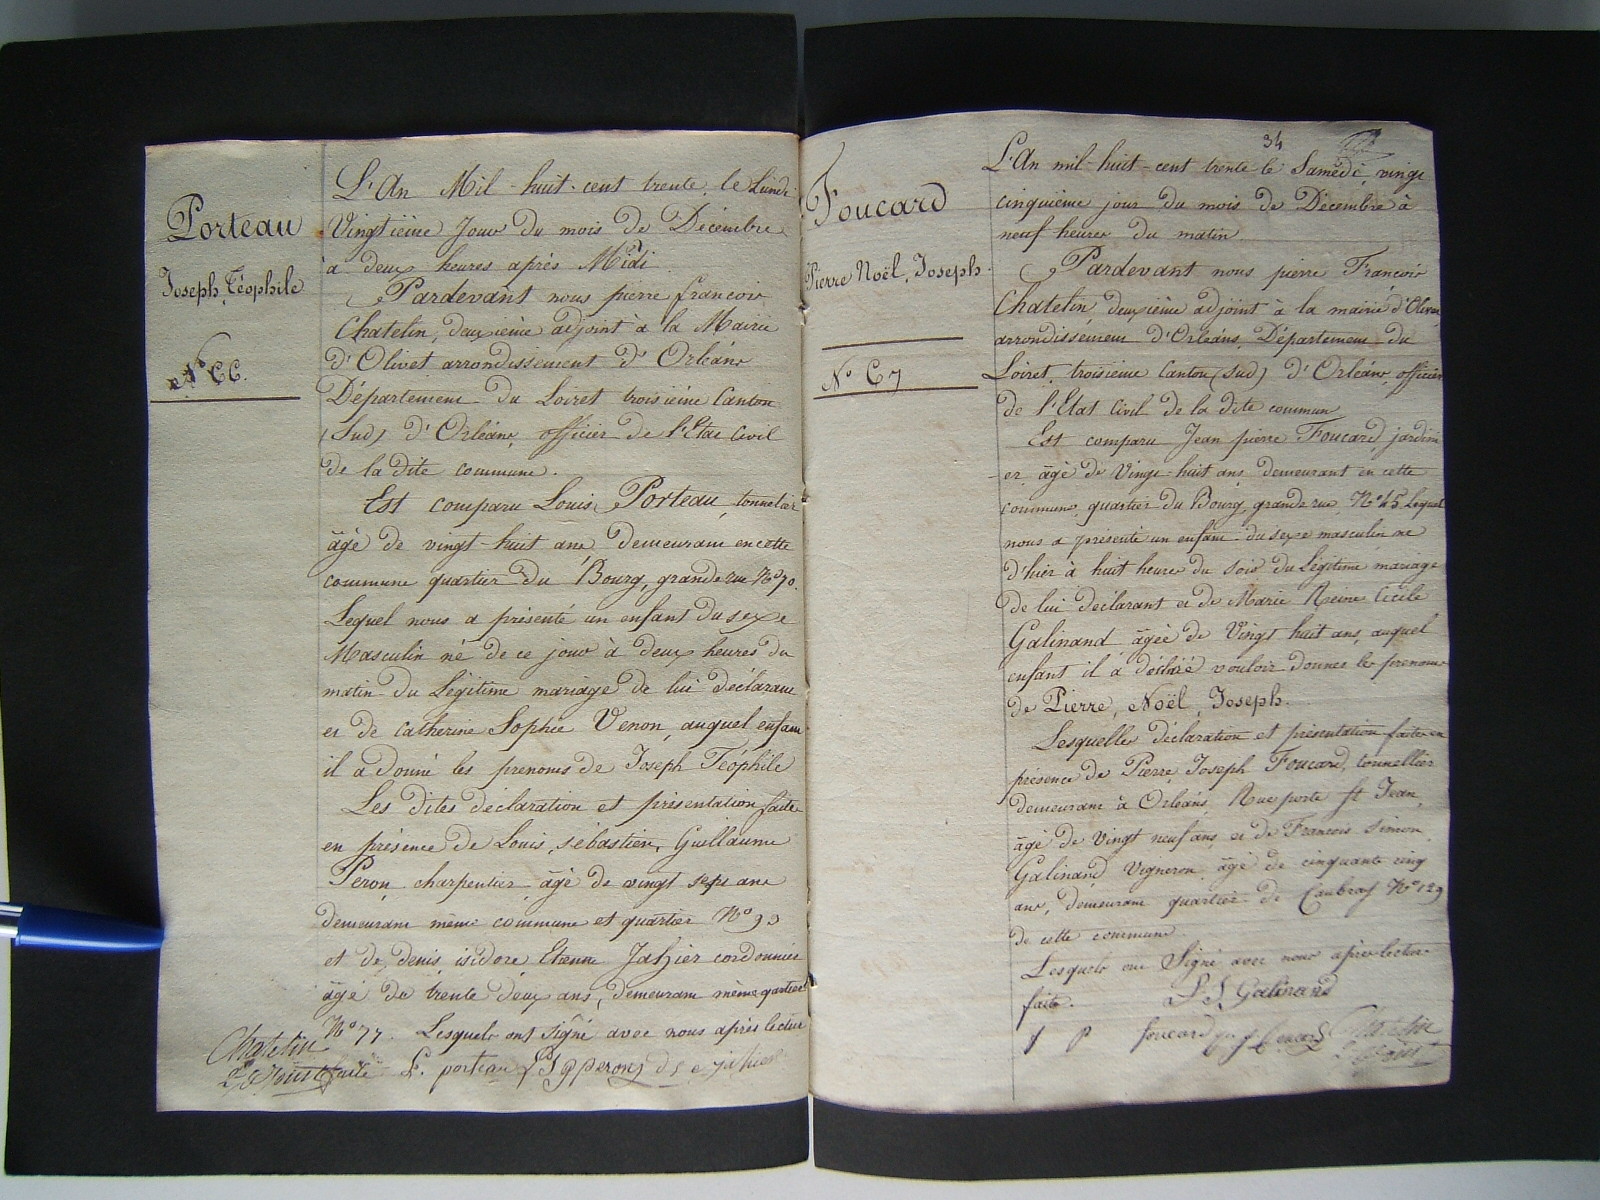 Porteau
Joseph, Téophile
N° 66.
L'An Mil-huit-cent trente, le Lundi
Vingtième Jour du mois de Décembre
à deux heures après Midi
Pardevant nous pierre francois
Chatelin, deuxième adjoint à la Mairie
d'Olivet arrondissement d'Orléans
Département du Loiret troisième Canton
(Sud) d'Orléans, officier de l'Etat Civil
de la dite commune.
Est comparu Louis Porteau, tonnelier
âgé de vingt-huit ans, demeurant en cette
commune quartier du Bourg, grande rue N° 70.
Lequel nous a présenté un enfant du sexe
Masculin né de ce jour à deux heures du
matin du Légitime mariage de lui déclarant
et de Catherine Sophie Venon, auquel enfant
il a donné les prenoms de Joseph Téophile
Les dites déclaration et présentation faite
en présence de Louis, sébastien, Guillaume
Peron charpentier âgé de vingt sept ans
demeurant même commune et quartier N° 93
et de, denis, isidore, Etienne Jahier cordonnier
âgé de trente deux ans, demeurant même quartier
N° 77. Lesquels ont signé avec nous après lecture
faite L. porteau L S G peron d s e jahier
Chatelin
2e adjoint
34
Foucard
Pierre Noël, Joseph.
N° 67
L'An mil-huit-cent trente le Samedi, vingt
cinquième jour du mois de Décembre à
neuf heures du matin
Pardevant nous pierre Francois
Chatelin, deuxième adjoint à la mairie d'Olivet,
arrondissement d'Orléans, Département du
Loiret, troisième Canton (Sud) d'Orléans, officier
de l'Etat Civil de la dite commun
Est comparu Jean pierre Foucard, jardini
-er, âgé de Vingt-huit ans, demeurant en cette
commune, quartier du Bourg, grande rue N° 45 Lequel
nous a présenté un enfant du sexe masculin né
d'hier à huit heures du soir du Légitime mariage
de lui déclarant et de Marie Reine Cécile
Galinand âgée de Vingt huit ans, auquel
enfant il a déclaré vouloir donner les prenoms
de Pierre, Noël, Joseph.
Lesquelles déclaration et présentation faites en
présence de Pierre, Joseph Foucard, tonnellier
demeurant à Orléans, Rue porte St Jean,
âgé de Vingt neuf ans et de Francois Simon
Galinand Vigneron âgé de cinquante cinq
ans, demeurant quartier de Caubray N° 129
de cette commune
Lesquels ont Signé avec nous après lecture
faite. F. S. Galinand
J P foucard p. j foucard Chatelin
2e adjoint